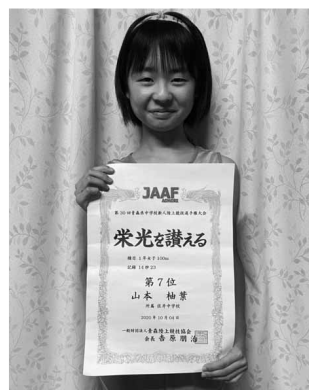 JAAF
AOMORI
第30回青森県中学校新人陸上競技選手権大会
栄光を讃える
種目 1年女子100m
記録 14秒23
第7位
山本 柚葉
所属 佐井中学校
2020年10月04日
一般財団法人青森陸上競技協会
会長 𠮷原朋治